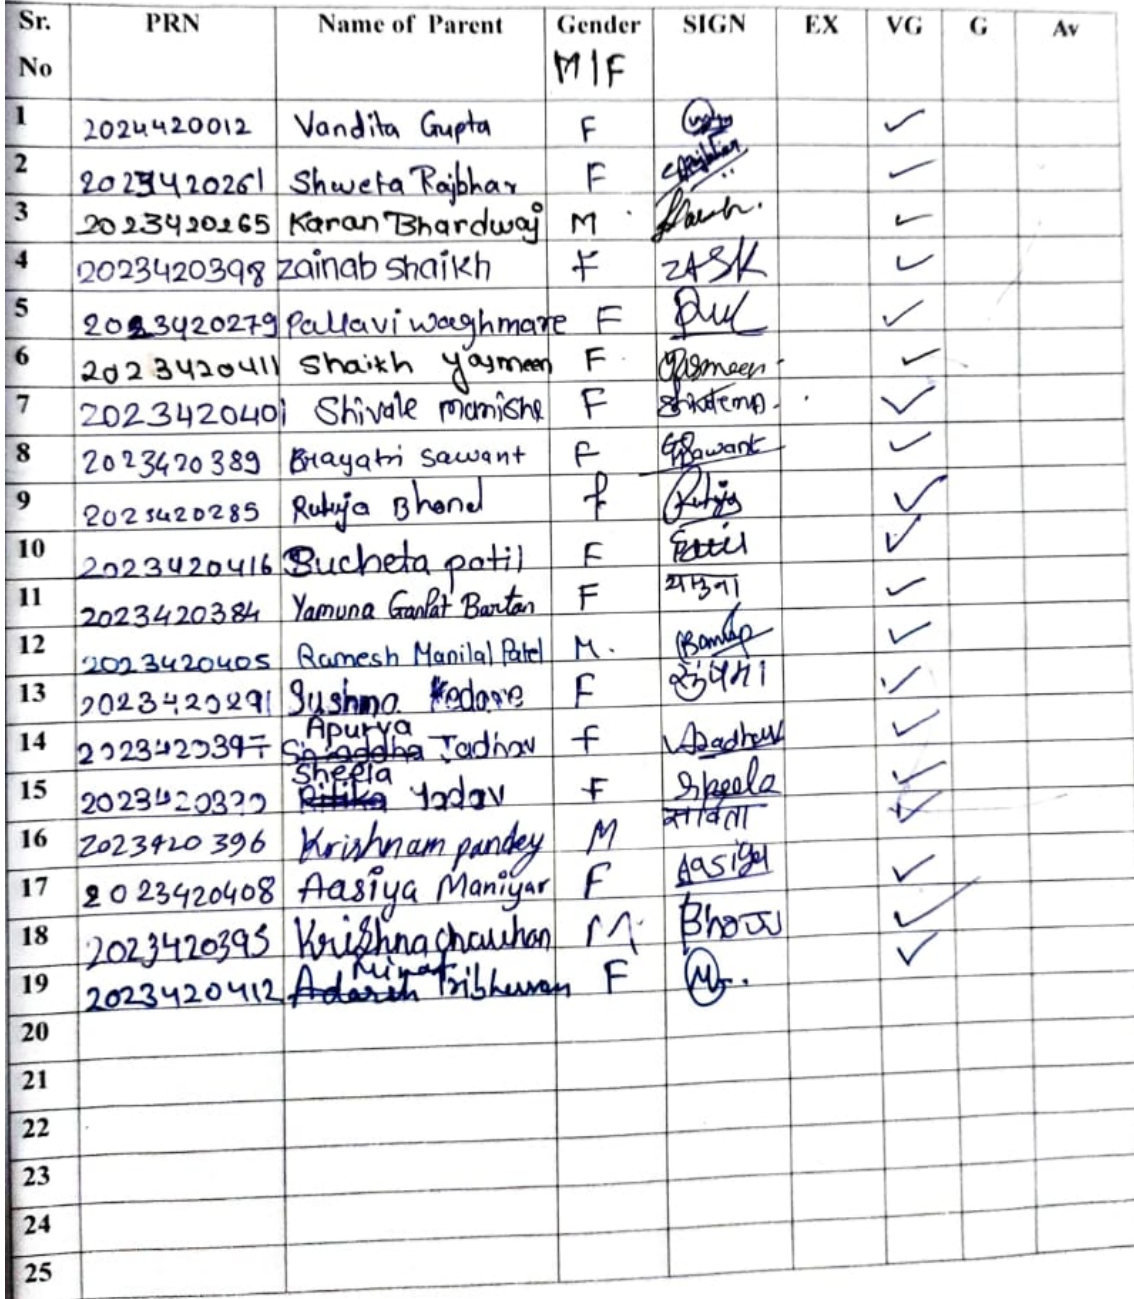 Sr. No PRN Name of Parent Gender M|F SIGN EX VG G Av
1 2024420012 Vandita Gupta F ✓
2 2023420261 Shweta Rajbhar F ✓
3 2023420265 Karan Bhardwaj M ✓
4 2023420398 zainab shaikh F ZASK ✓
5 2023420279 Pallavi waghmare F ✓
6 2023420411 Shaikh Yasmeen F Yasmeen ✓
7 2023420401 Shivale manisha F ✓
8 2023420389 Grayatri sawant F GSawant ✓
9 2023420285 Rutuja Bhond f Rutuja ✓
10 2023420416 Sucheta patil F ✓
11 2023420384 Yamuna Ganpat Bartan F ✓
12 2023420405 Ramesh Manilal Patel M. ✓
13 2023420291 Sushma Kedare F ✓
14 2023420397 Apurva Shraddha Jadhav F AJadhav ✓
15 Sheela Ritika Yadav F Sheela ✓
16 2023420396 Krishnam pandey M ✓
17 2023420408 Aasiya Maniyar F Aasiya ✓
18 2023420395 Krishna chauhan M ✓
19 2023420412 Adarsh Tribhuvan F M. ✓
20
21
22
23
24
25